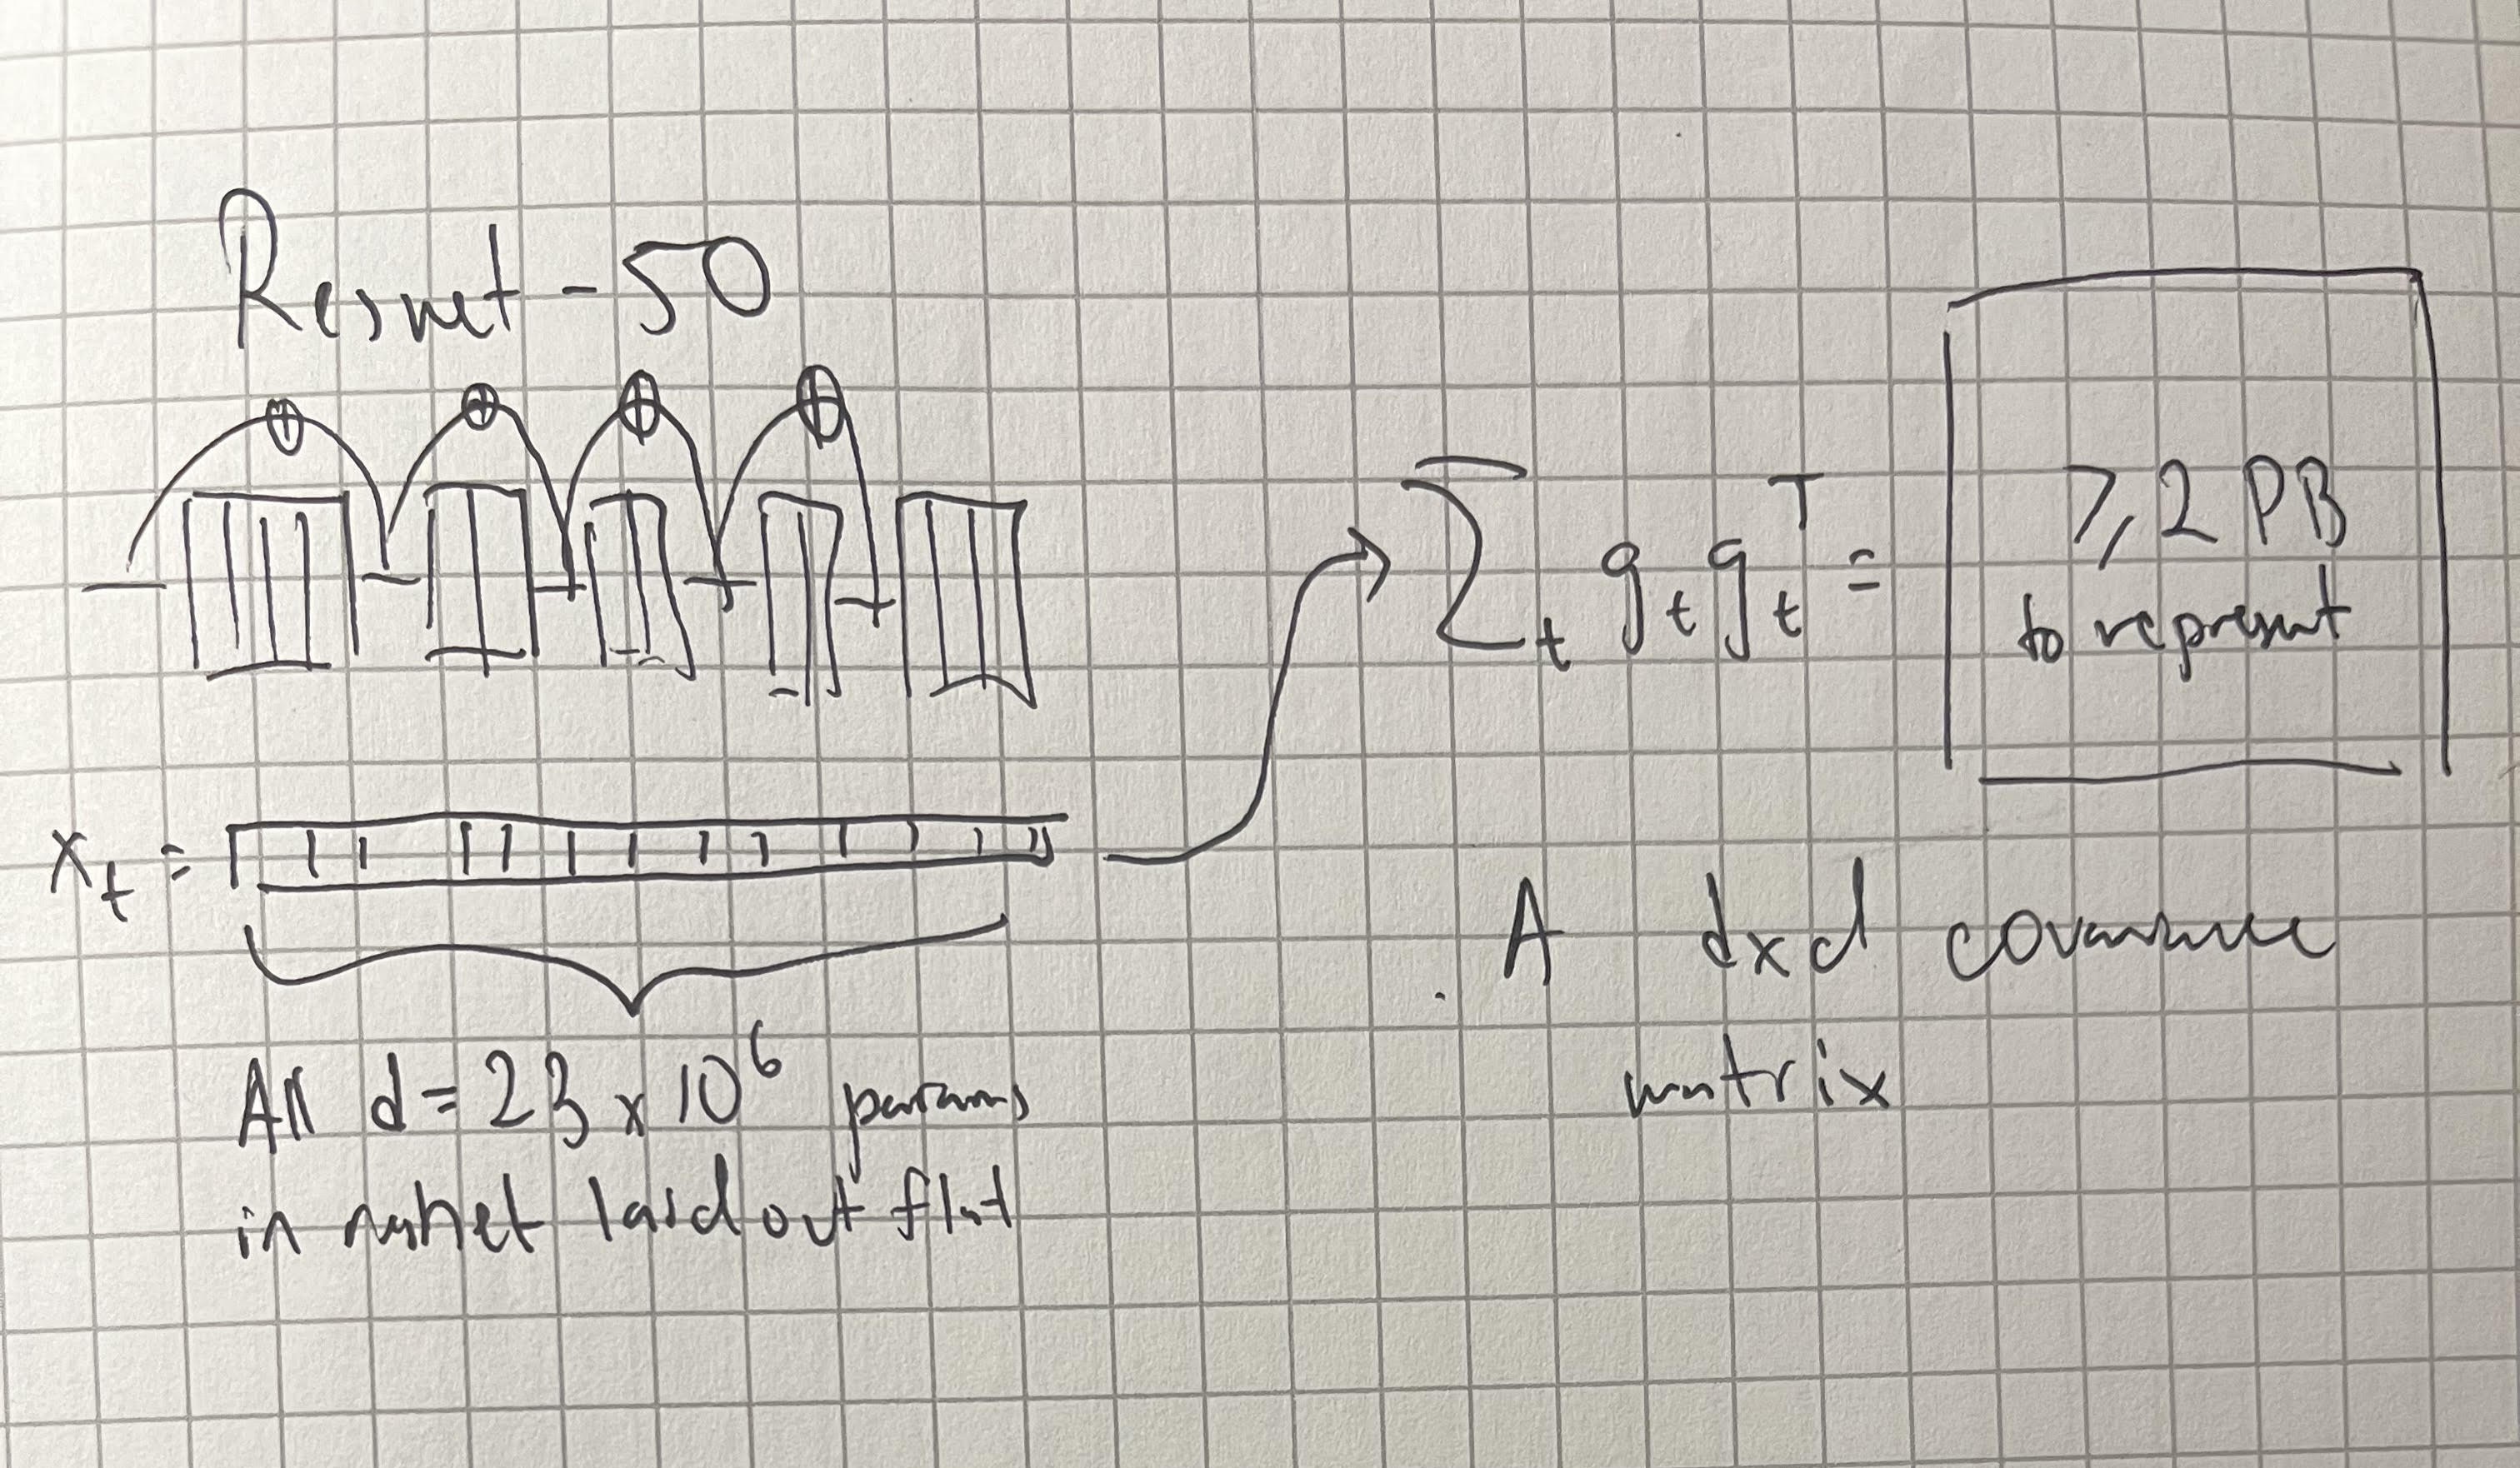 Resnet - 50
x_t =
All d = 23 x 10^6 params
in resnet laid out flat
Σ_t g_t g_t^T =
≥ 2 PB
to represent
A dxd covariance
matrix